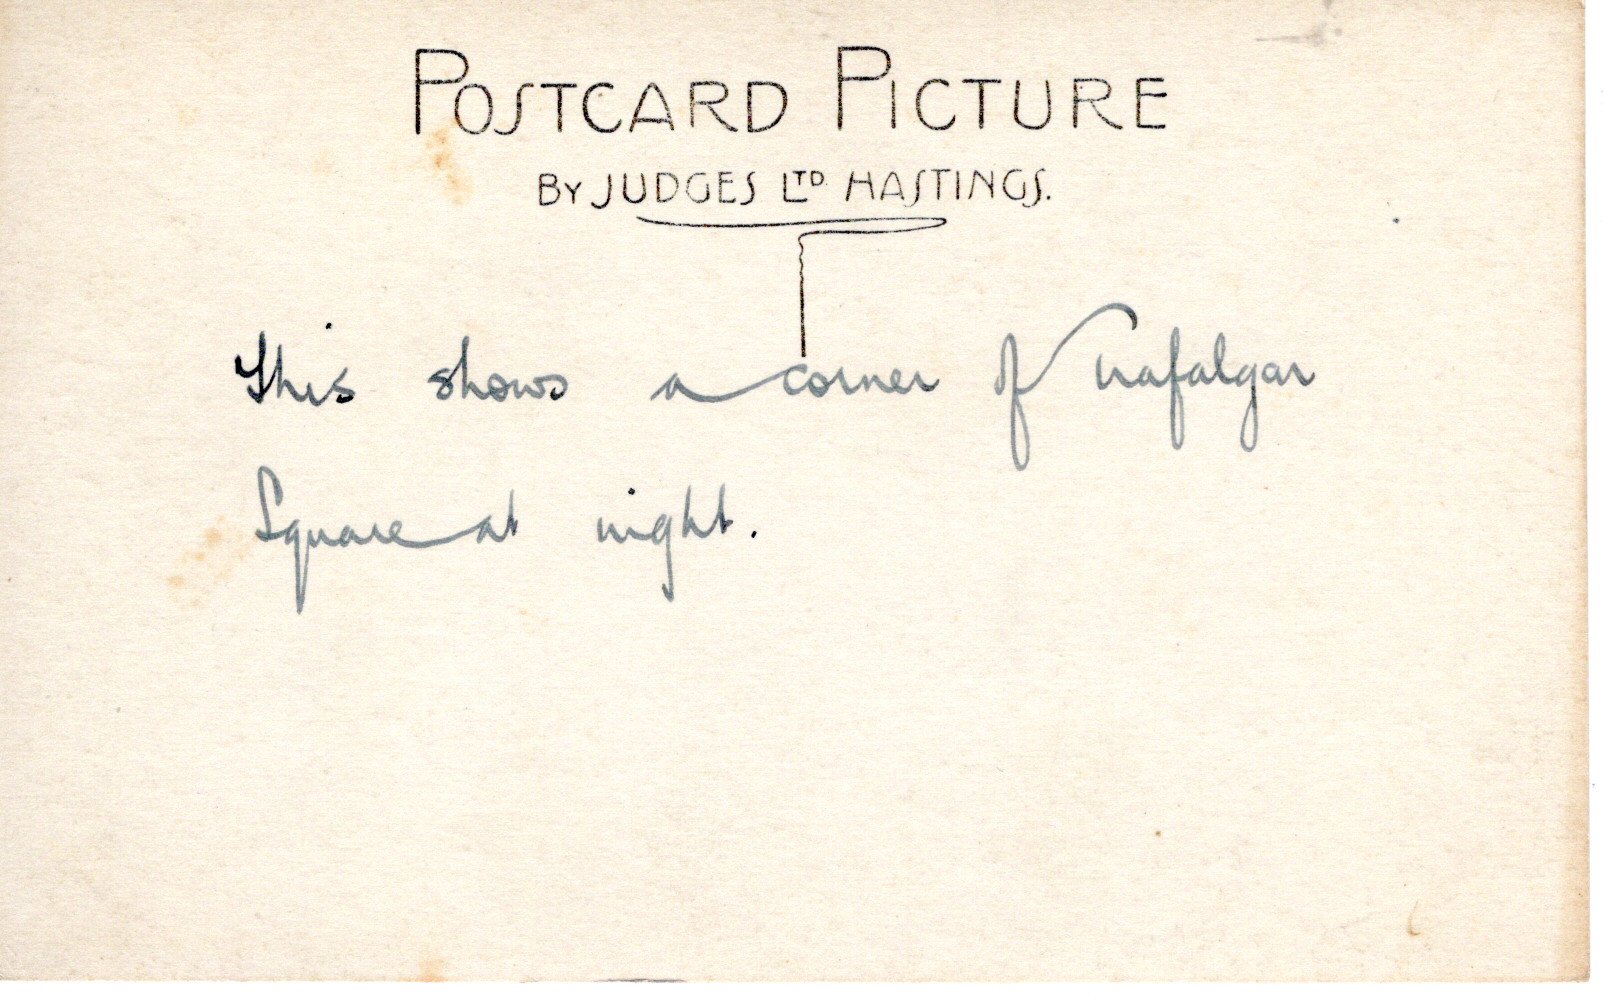 POSTCARD PICTURE
BY JUDGES LTD. HASTINGS.
This shows a corner of Trafalgar
Square at night.